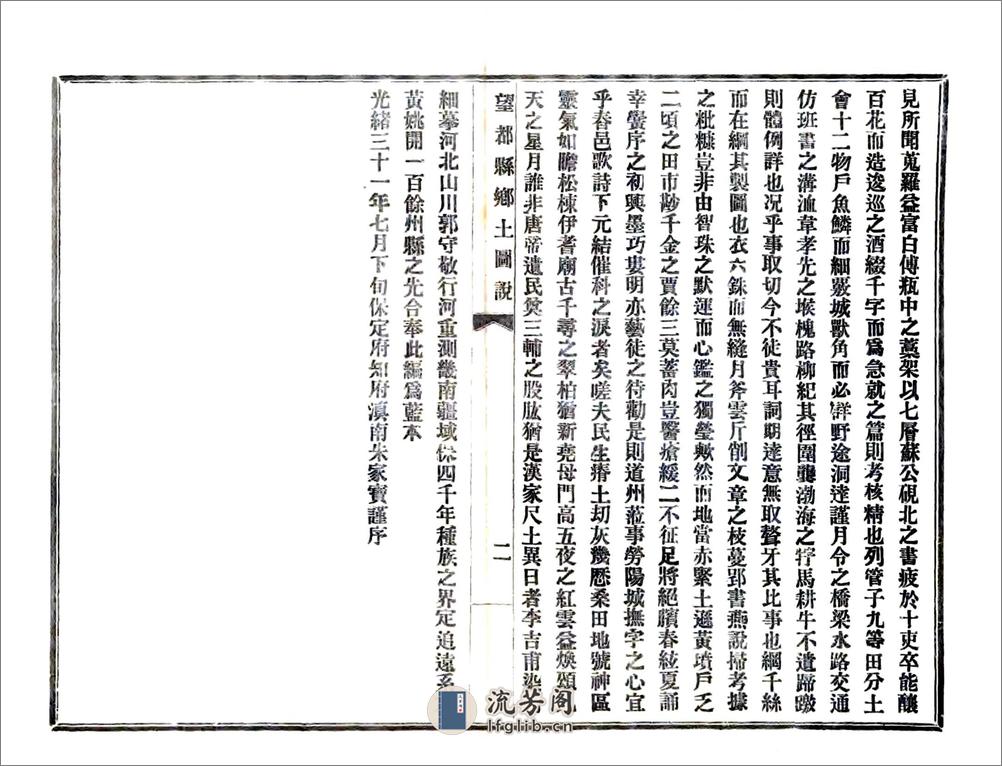 見所聞蒐羅益富白傅瓶中之藁架以七層蘇公硯北之書疲於十吏卒能釀
百花而造逡巡之酒綴千字而爲急就之篇則考核精也列管子九等田分土
會十二物戶魚鱗而細覈城獸角而必詳野途洞達謹月令之橋梁水路交通
仿班書之溝洫韋孝先之堠槐路柳紀其徑圍龔渤海之牸馬耕牛不遺蹄噭
則體例詳也况乎事取切今不徒貴耳詞期達意無取聱牙其比事也綱千絲
而在綱其製圖也衣六銖而無縫月斧雲斤削文章之枝蔓郢書燕說掃考據
之粃糠豈非由智珠之默運而心鑑之獨瑩歟然而地當赤緊土遜黃墳戶乏
二頃之田市尠千金之賈餘三莫蓄肉豈醫瘡緩二不征足將絕臏春絃夏誦
幸黌序之初興墨巧婁明亦藝徒之待勸是則道州蒞事勞陽城撫字之心宜
乎春邑歌詩下元結催科之淚者矣嗟夫民生瘠土刧灰幾厯桑田地號神區
靈氣如瞻松棟伊耆廟古千尋之翠柏猶新堯母門高五夜之紅雲益煥頌
天之星月誰非唐帝遺民奠三輔之股肱猶是漢家尺土異日者李吉甫染
望都縣鄉土圖說
二
細摹河北山川郭守敬行河重測畿南疆域保四千年種族之界定追遠系
黃姚開一百餘州縣之先合奉此編爲藍本
光緒三十一年七月下旬保定府知府滇南朱家寶謹序
流芳阁
lfglib.cn